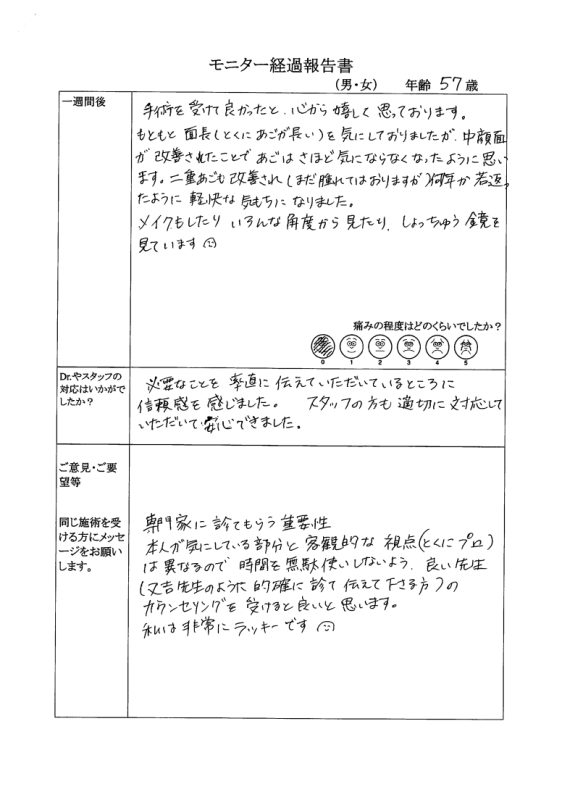 モニター経過報告書
(男・女) 年齢 57歳
一週間後
手術を受けて良かったと、心から嬉しく思っております。
もともと面長(とくにあごが長い)を気にしておりましたが、中顔面
が改善されたことであごはさほど気にならなくなったように思い
ます。二重あごも改善され(まだ腫れてはおりますが)何年か若返っ
たように軽快な気もちになりました。
メイクもしたり いろんな角度から見たり、しょっちゅう鏡を
見ています
痛みの程度はどのくらいでしたか?
0 1 2 3 4 5
Dr.やスタッフの
対応はいかがで
したか?
必要なことを率直に伝えていただいているところに
信頼感を感じました。 スタッフの方も適切に対応して
いただいて安心できました。
ご意見・ご要
望等
同じ施術を受
ける方にメッセ
ージをお願い
します。
専門家に診てもらう重要性
本人が気にしている部分と客観的な視点(とくにプロ)
は異なるので時間を無駄使いしないよう、良い先生
(又吉先生のように的確に診て伝えて下さる方)の
カウンセリングを受けると良いと思います。
私は非常にラッキーです